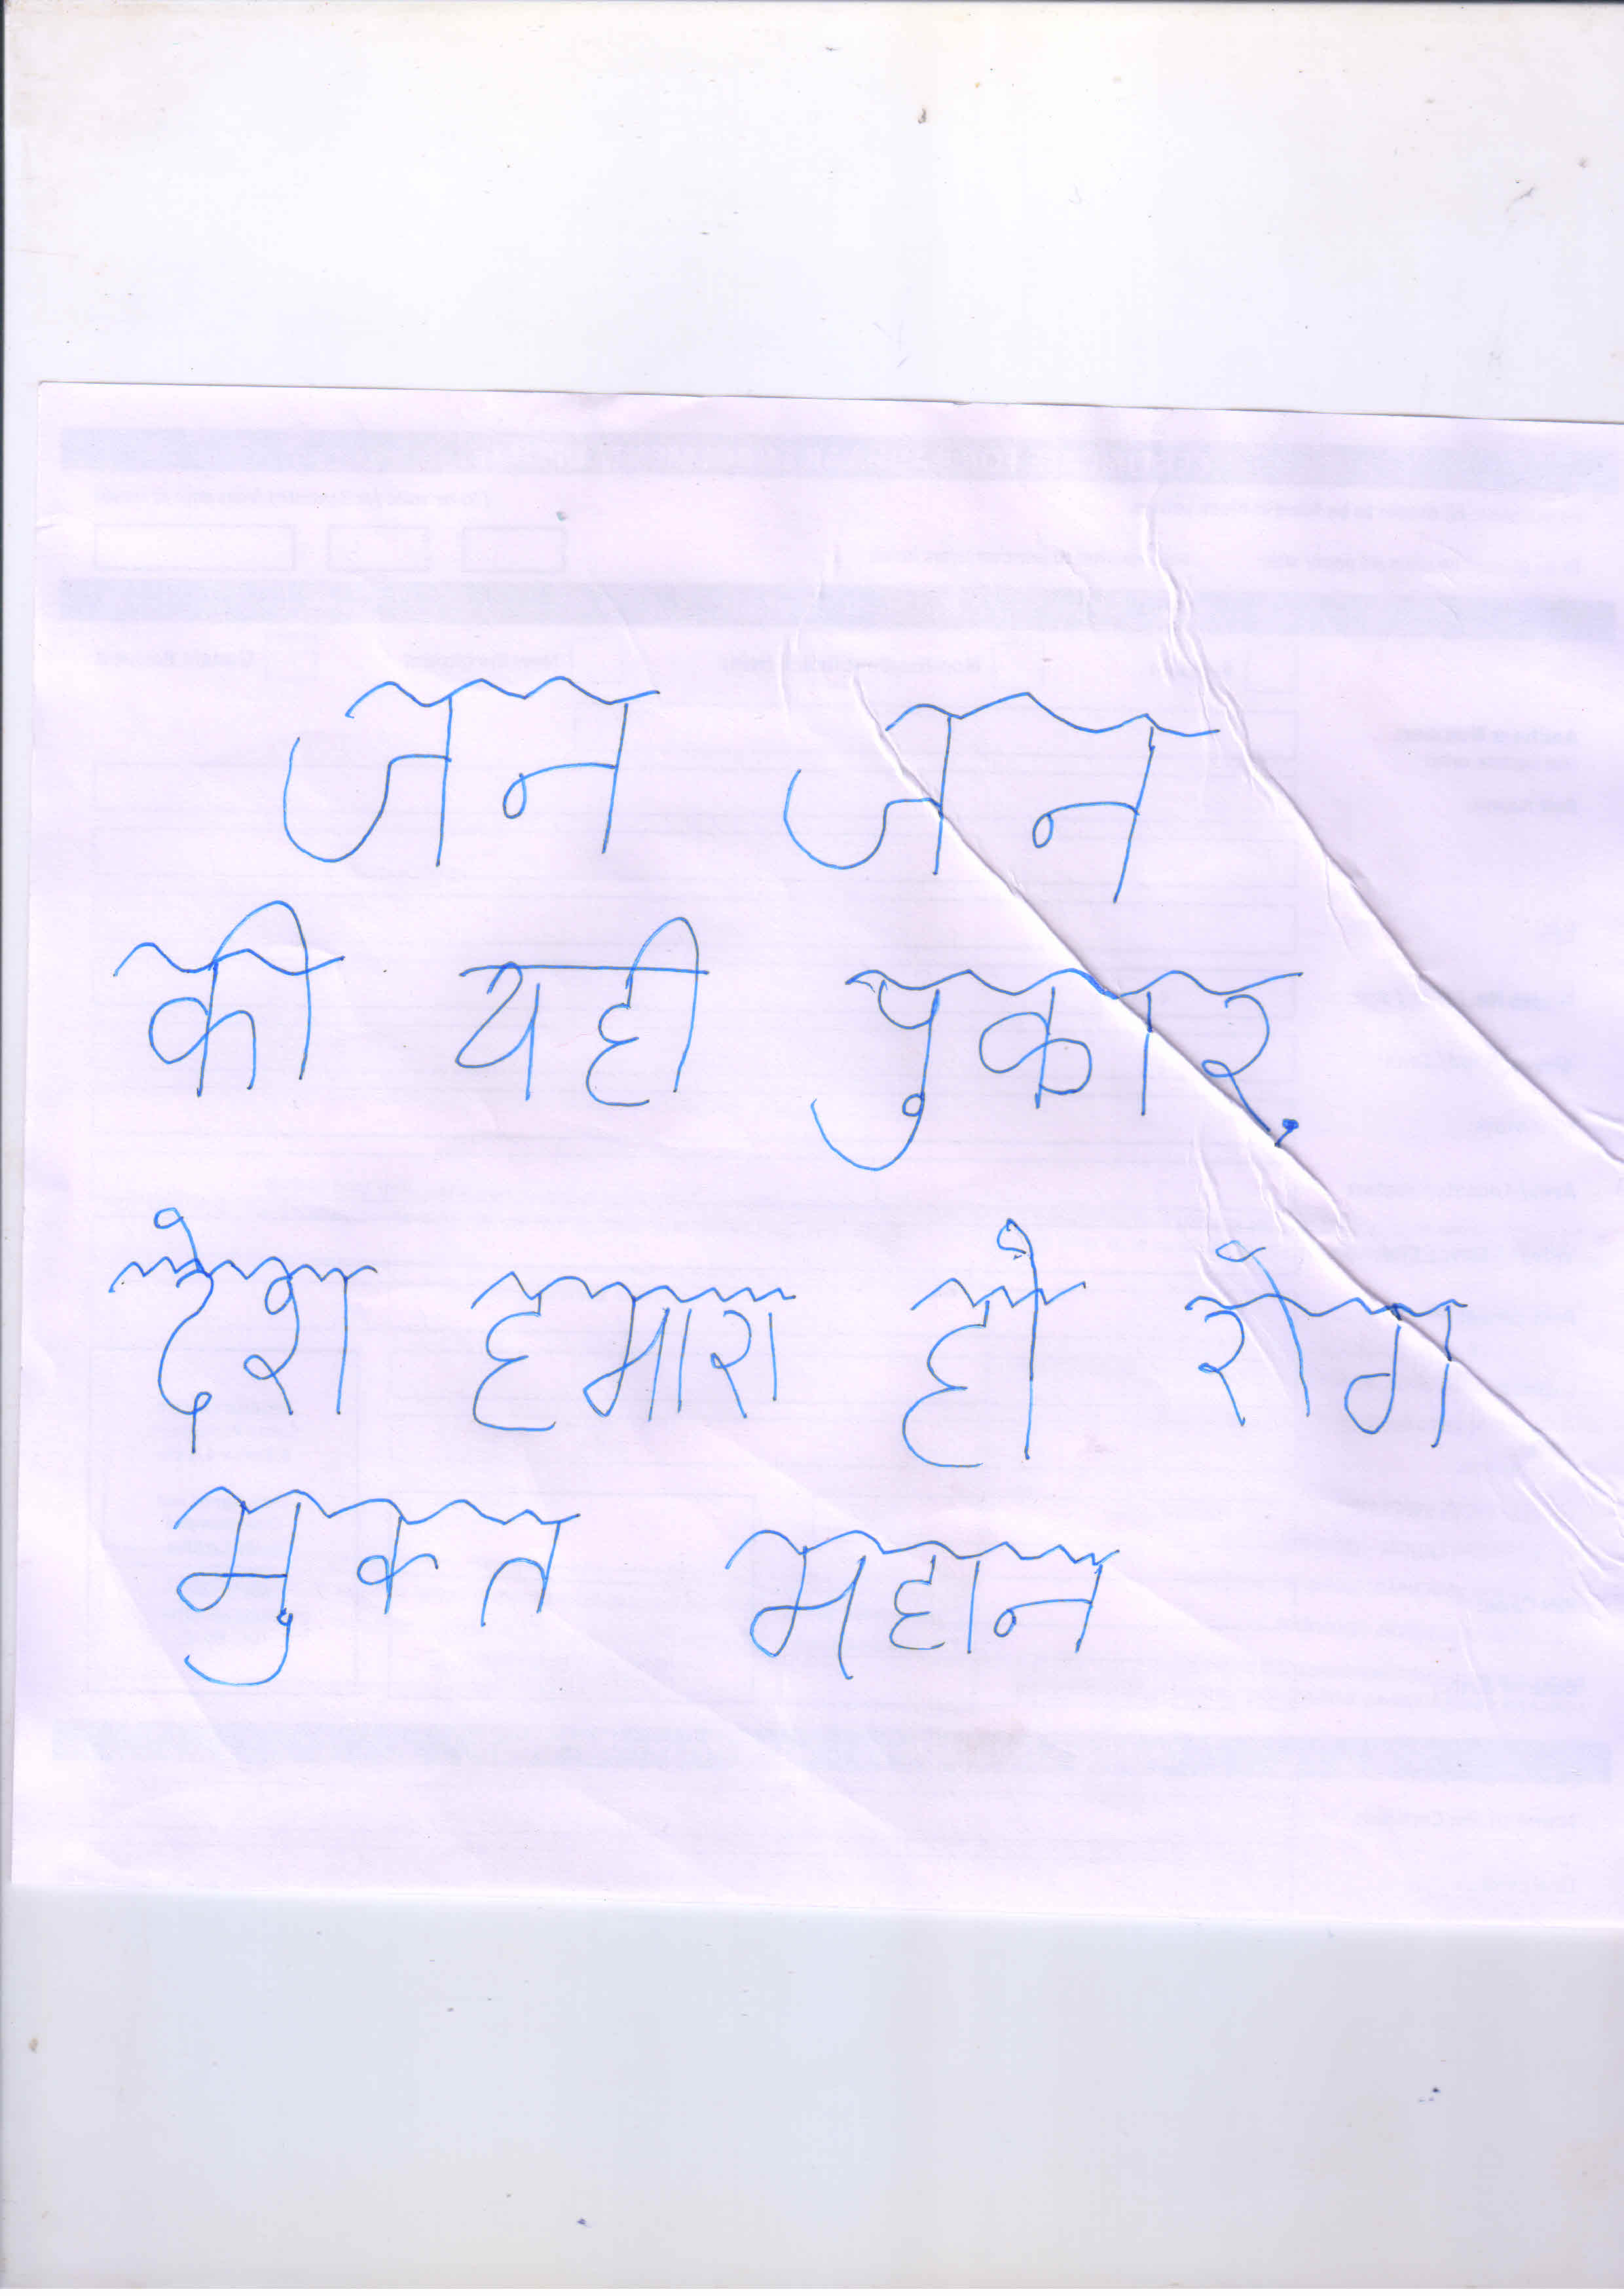 जन जन
की यही पुकार,
देश हमारा हो रोग
मुक्त महान